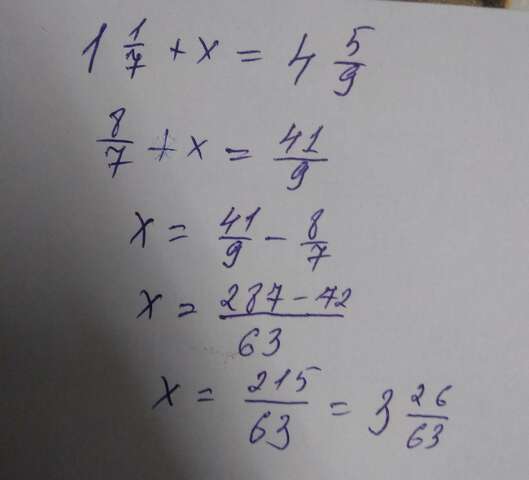 1 1/7 + x = 4 5/9
8/7 + x = 41/9
x = 41/9 - 8/7
x = 287 - 72/63
x = 215/63 = 3 26/63